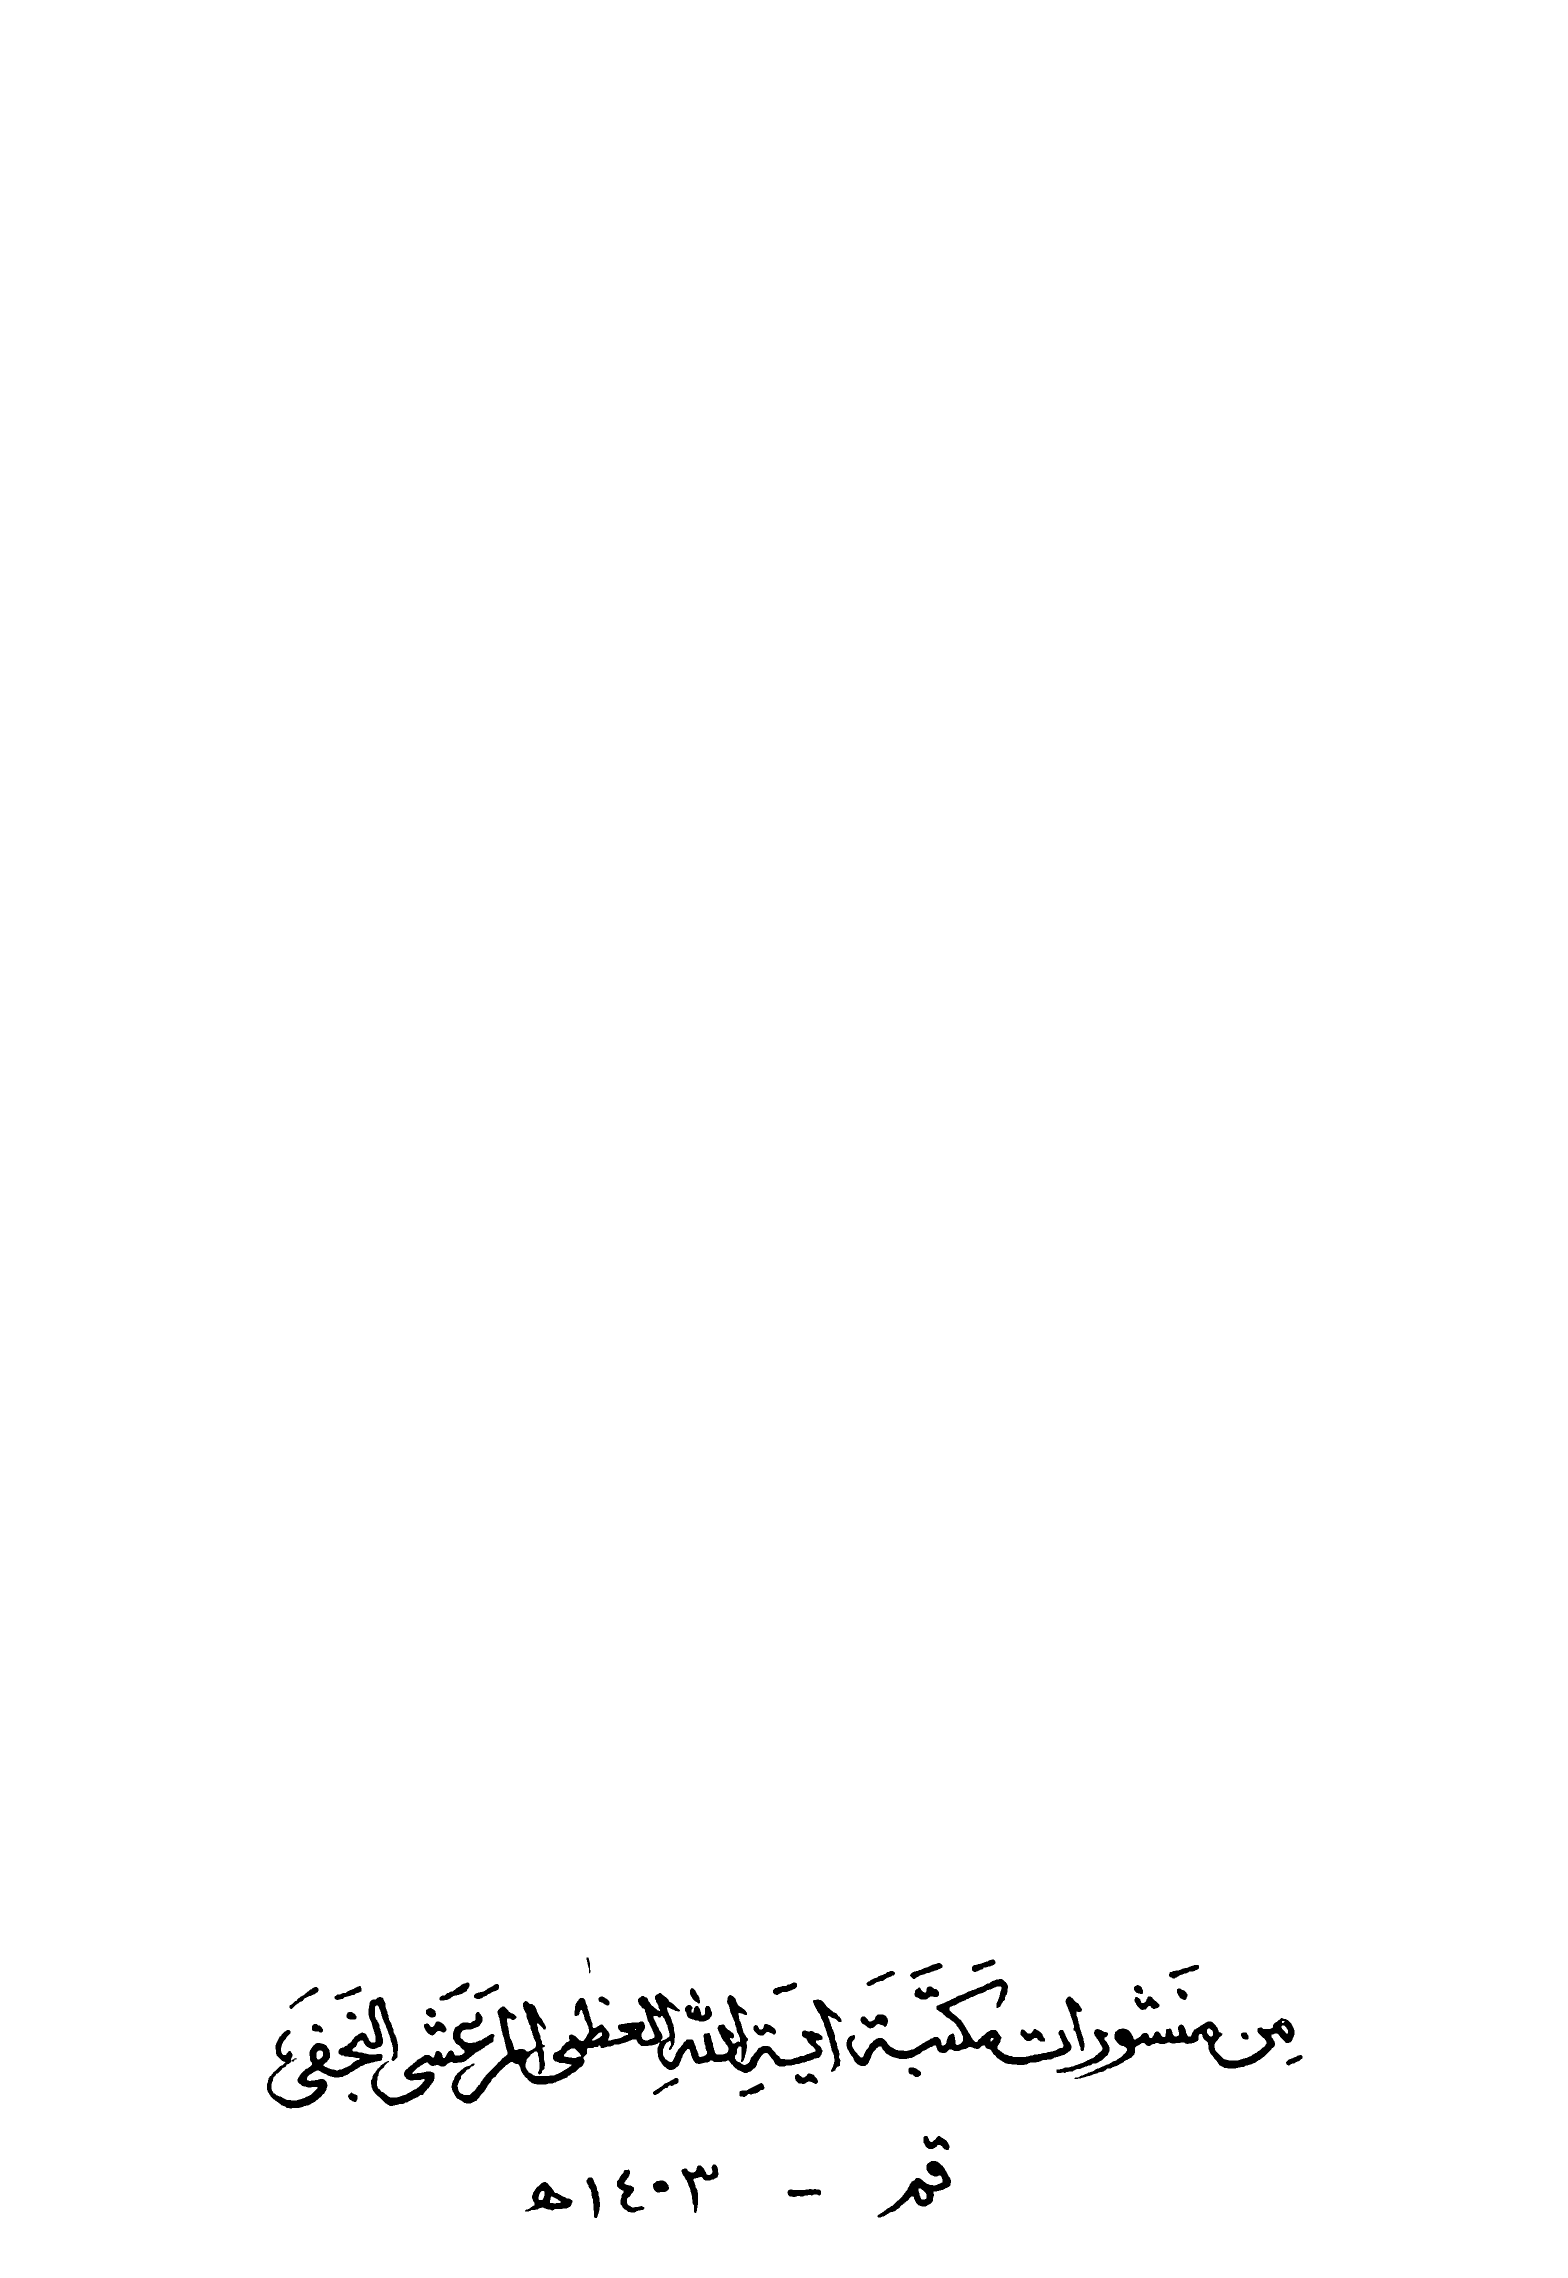 مِن مَنشورات مَكتَبَة ايَةِ اللهِ العظمى المرعَشى النَجَفى
قم - ١٤٠٣ه